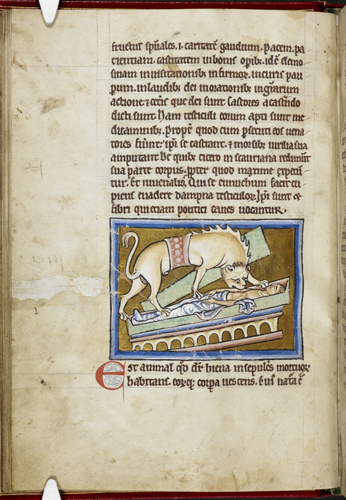 fructus sp̅uales. i. caritatē gaudium. pacem. pa
cientiam. castitatem in bonis opib̛. id ē elemo
sinam in uisitationib̛ infirmoꝝ. in curis pau
pum. in laudib̛ dei in orationib̛ in gr̄arum
actione. ⁊ cet̄is que dei sunt Castores a castrando
dicti sunt. Nam testiculi eorum apti sunt me
dicaminib̛. Propt̄ quod cum p̄senserit eos uena
tores
ipsi se castrant. ⁊ morsib̛ uirilia sua
amputant De quib̛ cicero in scauriana redimūt
sua parte corpus. ꝓpter quod maxime expetūt
tur. Et iuuenalis. Qui se eunuchum facit cu
piens euadere dampna testiculoꝝ. Ipsi sunt ⁊
fibri qui etiam pontici canes uocantur.
Est animal qd̄ dr̄ hiena in sepulcris mortuoꝝ
habitans. eorq̛ corpa uescens. Cui̛ nat̄a ē